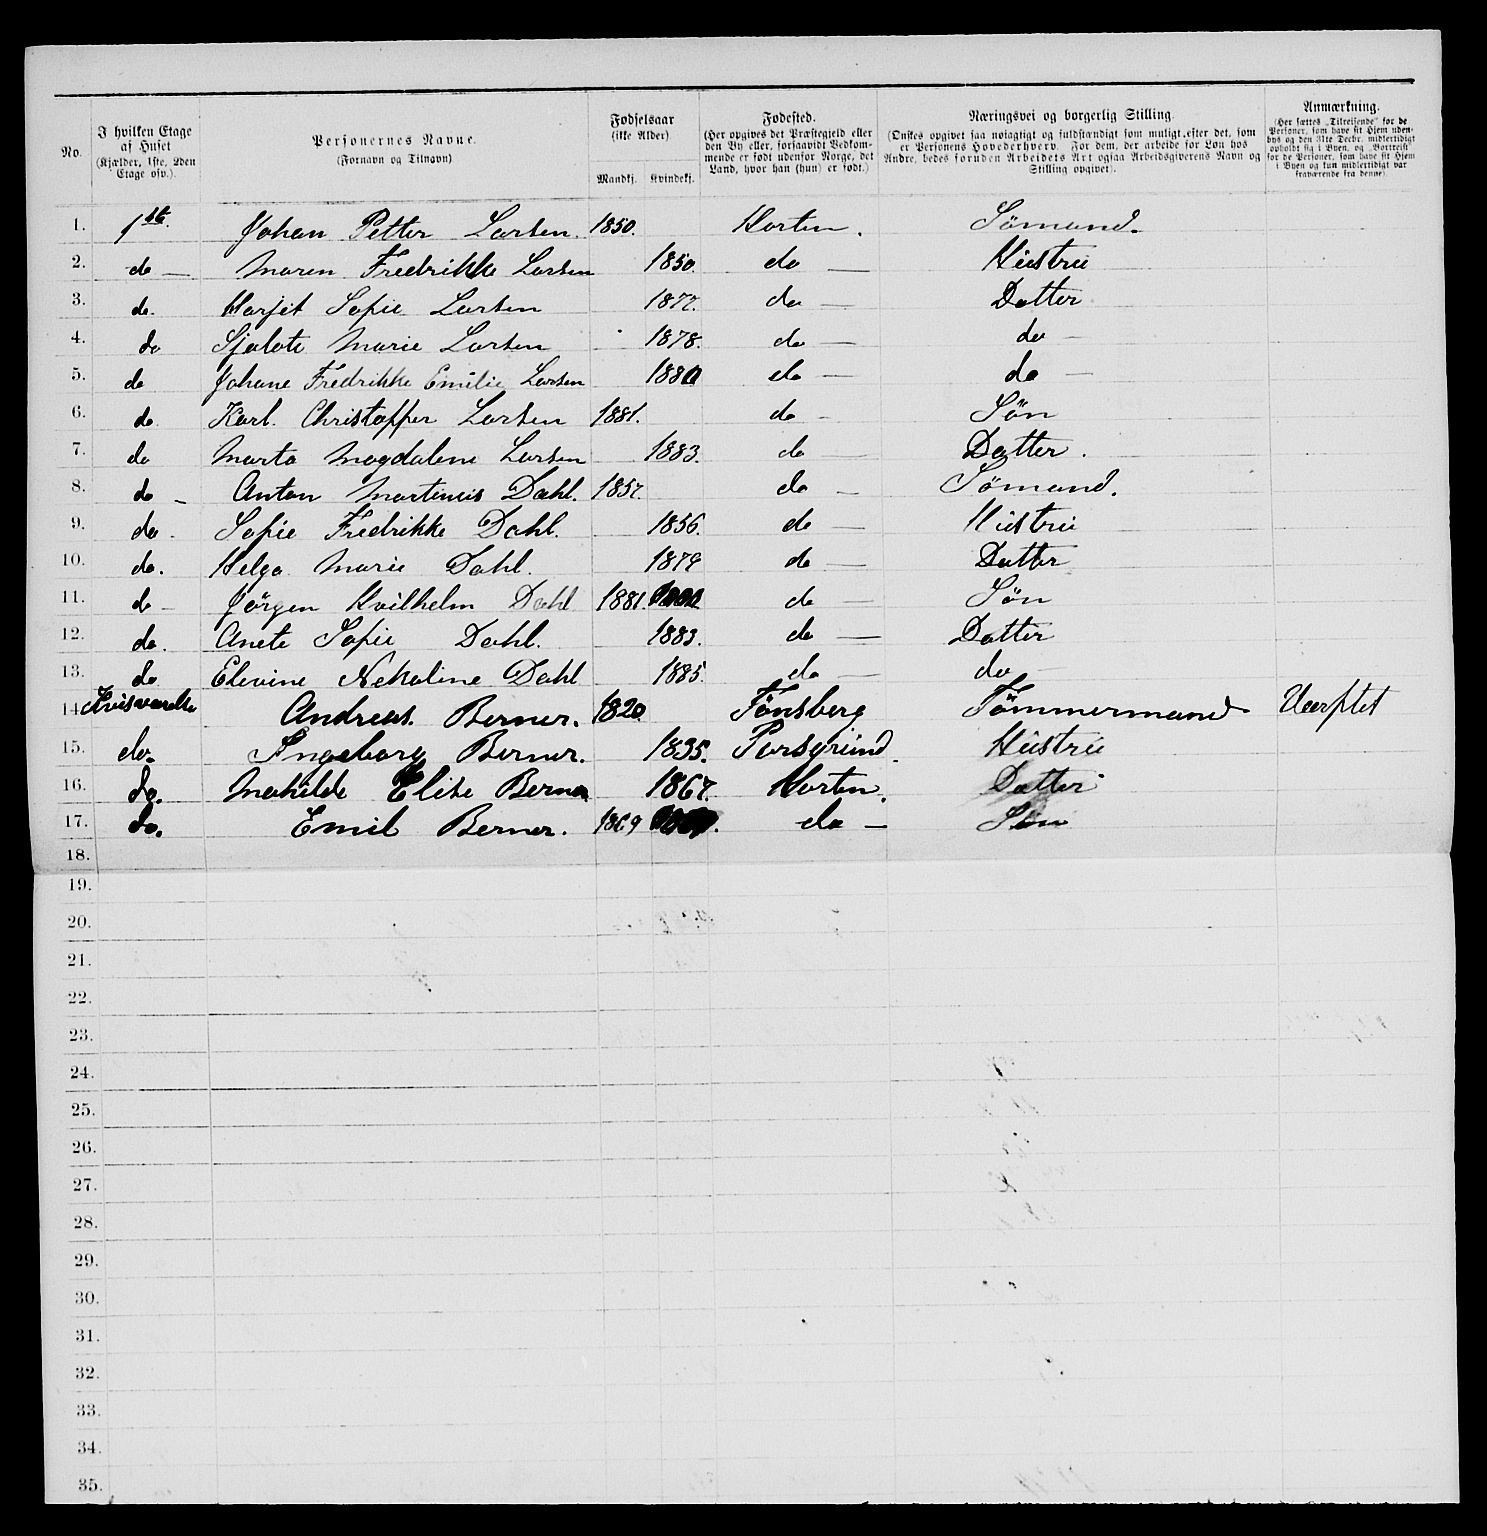 No. | I hvilken Etage af Huset (Kjælder, 1ste, 2den Etage osv.). | Personernes Navne. (Fornavn og Tilnavn) | Fødselsaar (ikke Alder). Mandkj. | Kvindekj. | Fødested. (Her opgives det Præstegjeld eller den By eller, forsaavidt Vedkommende er født udenfor Norge, det Land, hvor han (hun) er født.) | Næringsvei og borgerlig Stilling. (Ønskes opgivet saa nøiagtigt og fuldstændigt som muligt efter det, som er Personens Hovederhverv. For dem, der arbeide for Løn hos Andre, bedes foruden Arbeidets Art ogsaa Arbeidsgiverens Navn og Stilling opgivet). | Anmærkning. (Her sættes „Tilreisende" for de Personer, som have sit Hjem udenbys og den 31te Decbr. midlertidigt opholdt sig i Byen, og „Bortreist" for de Personer, som have sit Hjem i Byen og kun midlertidigt var fraværende fra denne).
1. 1ste. Johan Petter Larsen. 1850. Horten. Sömand.
2. do — Maren Fredrikke Larsen 1850. do — Hustru
3. do. Harjet Sofie Larsen 1877. do — Datter
4. do Sjalote Marie Larsen 1878. do — do —
5. do Johane Fredrikke Emilie Larsen 1880 do — do —
6. do. Karl. Christoffer Larsen 1881. do — Sön
7. do Marta Magdalene Larsen 1883. do — Datter.
8. do — Anton Martinius Dahl. 1857. do — Sömand.
9. do. Sofie Fredrikke Dahl. 1856. do — Hustru
10. do. Helga Marie Dahl. 1879 do — Datter
11. do — Jörgen Hvilhelm Dahl 1881. do — Sön
12. do. Anete Sofie Dahl. 1883. do — Datter
13. do. Elevine Nekoline Dahl 1885. do — do —
14. Kvisværelse Andreas. Berner. 1820. Tönsberg Tömmermand Uarftet
15. do. Ingeborg Berner. 1835. Porsgrund. Hustru
16. do. Mathilde Elise Berner 1867. Horten. Datter
17. do. Emil Berner. 1869 do — Sön
18.
19.
20.
21.
22.
23.
24.
25.
26.
27.
28.
29.
30.
31.
32.
33.
34.
35.